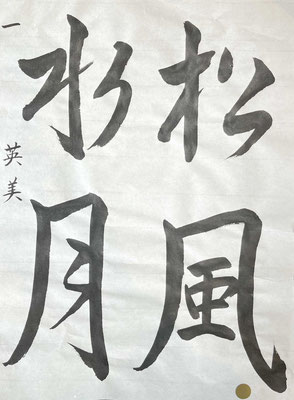 松風
水月
一 英美